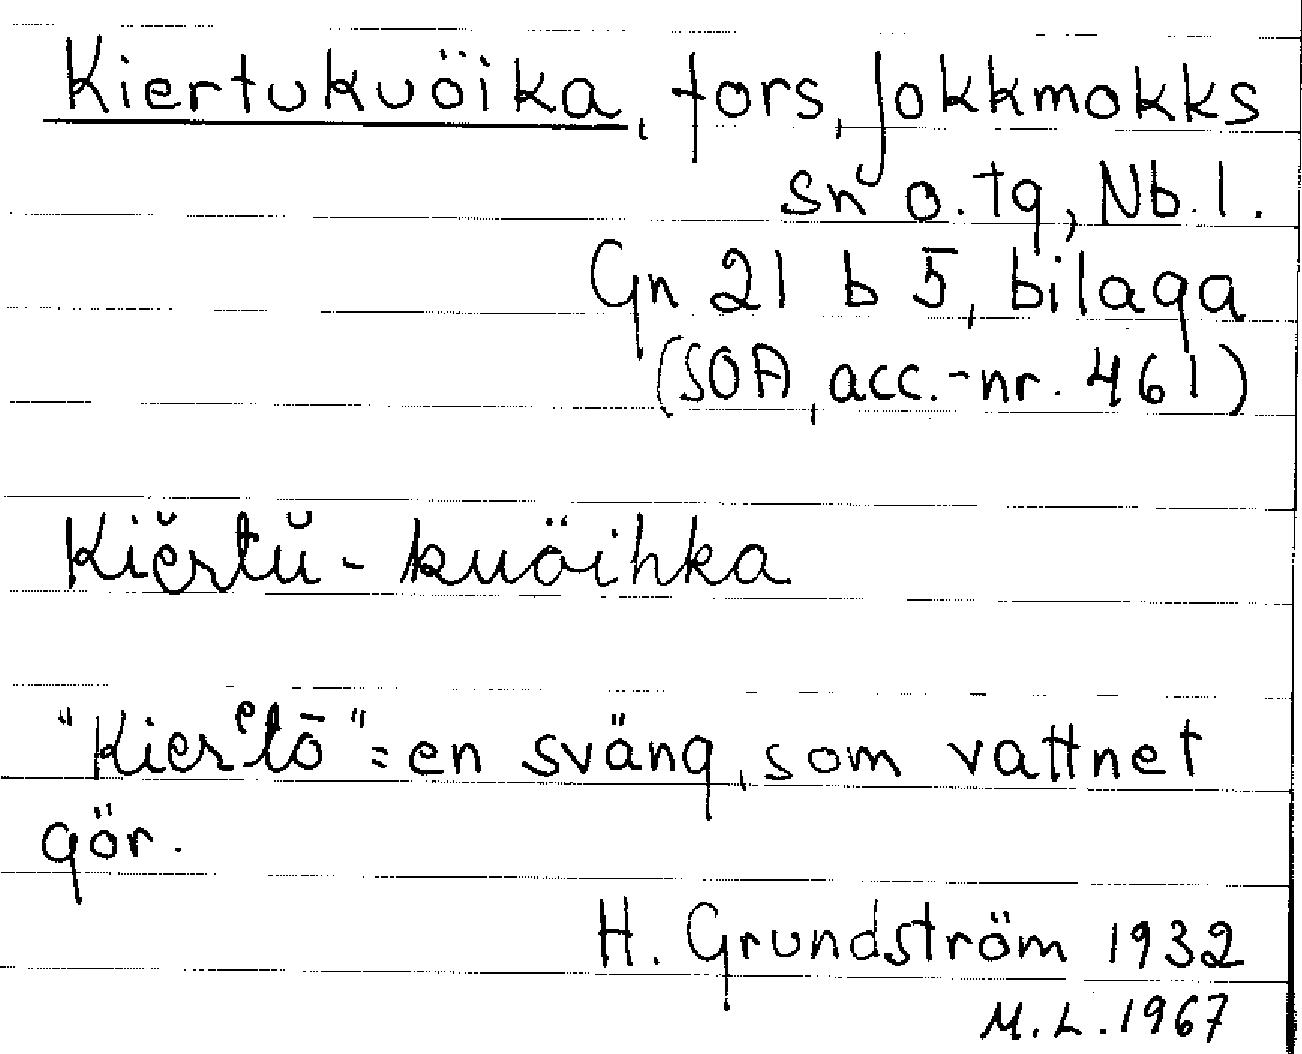 Kiertukuöika, fors, Jokkmokks
sn o. tg, Nb. l.
Gn 21 b 5, bilaga
(SOA, acc.-nr. 461)
Kiĕrtŭ-kuöihka
"Kierᵉtō" = en sväng, som vattnet
gör.
H. Grundström 1932
M.L. 1967